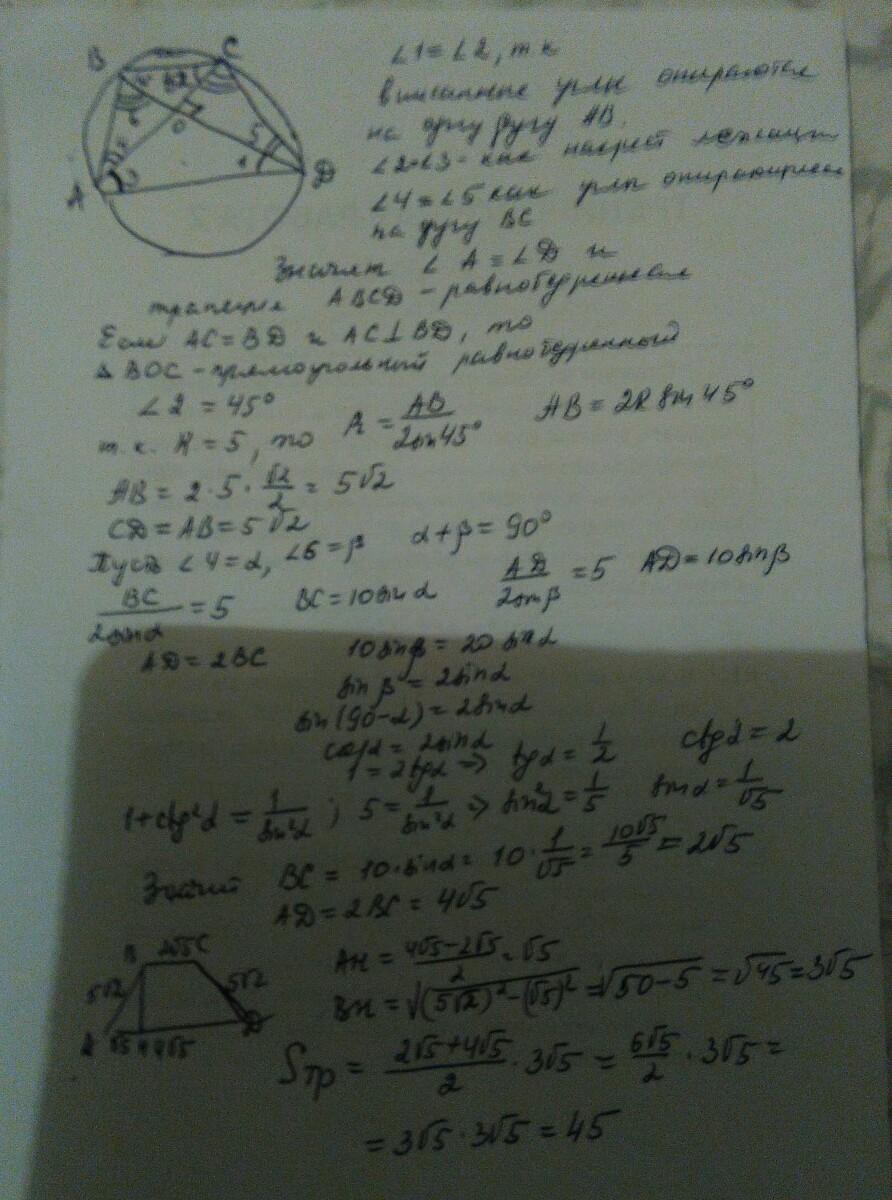 B C
A D
O
∠1=∠2, т к
вписанные углы опираются
на одну дугу AB.
∠2=∠3 - как накрест лежащие
∠4=∠5 как углы опирающиеся
на дугу BC
Значит ∠A=∠D и
трапеция ABCD - равнобедренная
Если AC=BD и AC⊥BD, то
△BOC - прямоугольный равнобедренный
∠2 = 45°
R = AB/2sin45° AB = 2R sin 45°
т.к. R = 5, то
AB = 2·5·√2/2 = 5√2
CD = AB = 5√2
Пусть ∠4=α, ∠6=β α+β=90°
BC/2sinα = 5 BC=10sinα AD/2sinβ = 5 AD=10sinβ
AD=2BC 10sinβ=20sinα
sinβ=2sinα
sin(90-α)=2sinα
cosα=2sinα
1=2tgα => tgα=1/2 ctgα=2
1+ctg²α=1/sin²α ; 5=1/sin²α => sin²α=1/5 sinα=1/√5
Значит BC = 10·sinα = 10·1/√5 = 10√5/5 = 2√5
AD=2BC=4√5
B 2√5 C
5√2 5√2
D
√5 H 4√5
AH = 4√5-2√5/2 = √5
BH = √(5√2)²-(√5)² = √50-5 = √45 = 3√5
Sтр = 2√5+4√5/2 · 3√5 = 6√5/2 · 3√5 =
= 3√5·3√5 = 45